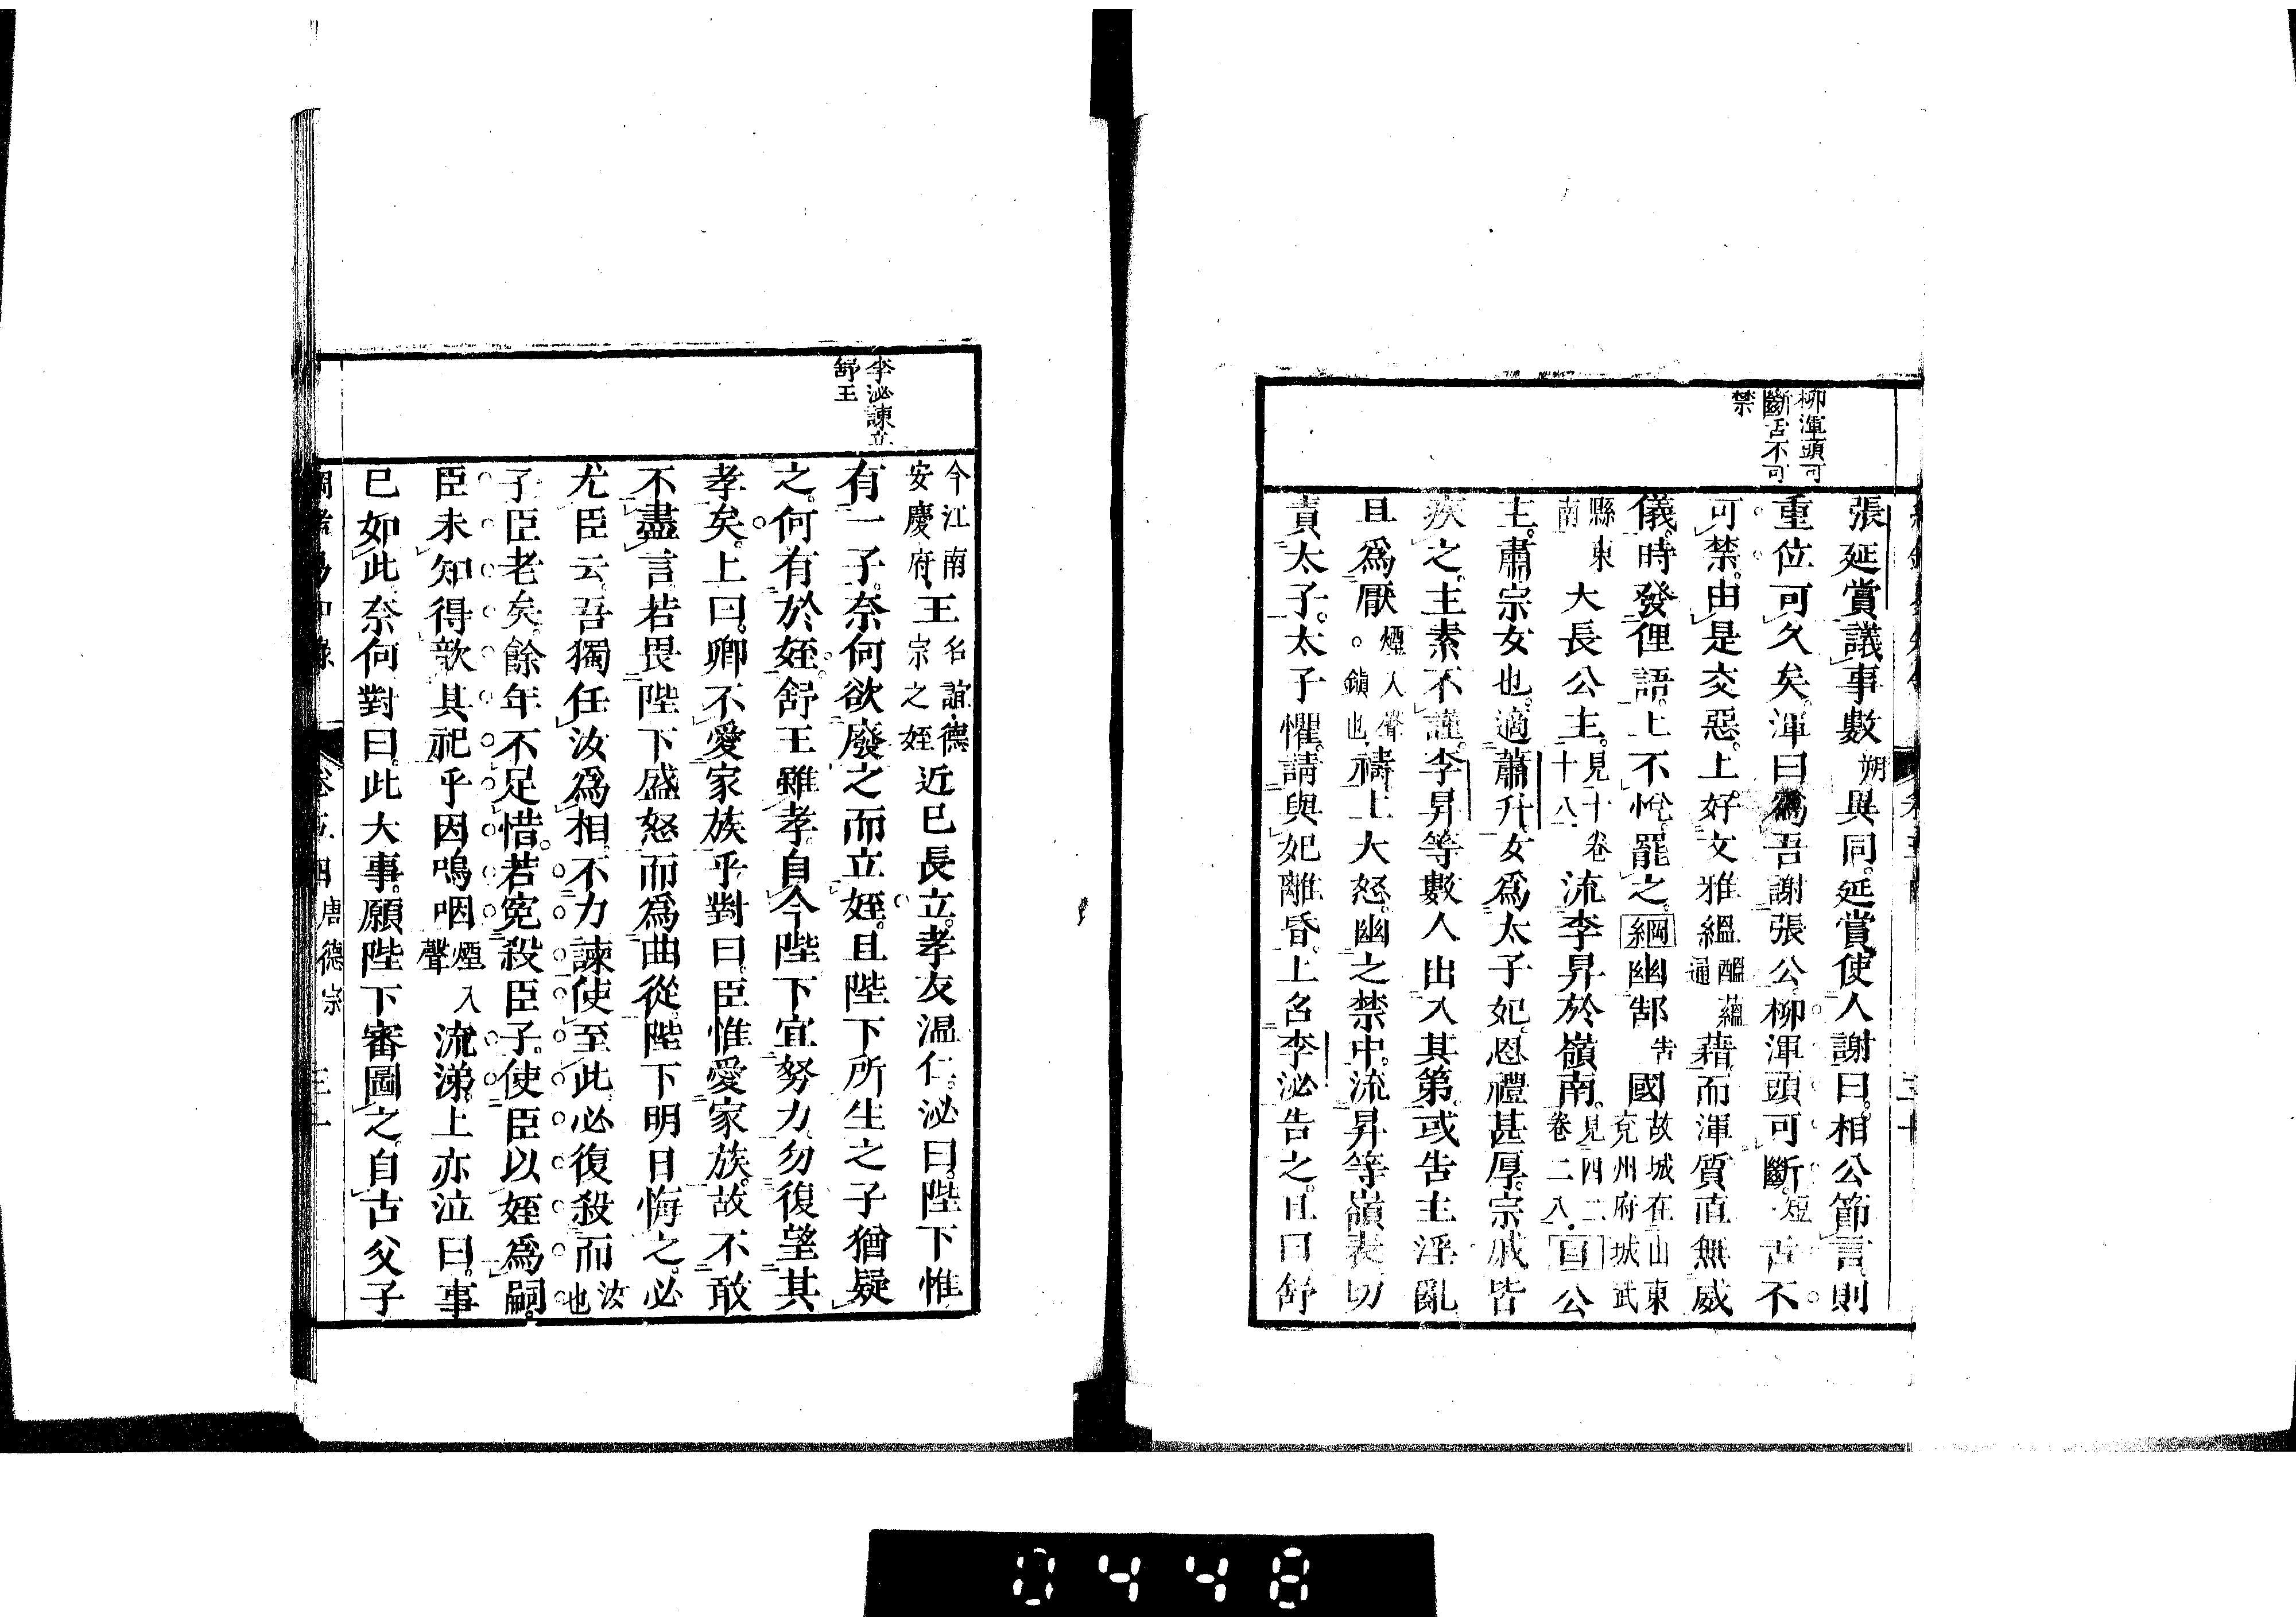 柳渾頭可
斷舌不可
禁
張延賞議事數朔異同。延賞使人謝曰。相公節言則
重位可久矣。渾曰爲吾謝張公。柳渾頭可斷。短舌不
可禁。由是交惡。上好文雅縕醞藉而渾質直無威
儀。時發俚語。上不悅。罷之。綱幽郜告國故城在山東兗州府城武
縣東南大長公主。見十卷十八流李昇於嶺南。見四二卷二八目公
主。肅宗女也。適蕭升。女爲太子妃。恩禮甚厚。宗戚皆
疾之。主素不謹。李昇等數人出入其第。或告主淫亂
且爲厭煙入聲。鎭也禱。上大怒。幽之禁中。流昇等嶺表。切
責太子。太子懼。請與妃離昏。上召李泌告之。且曰舒
李泌諫立
舒王
今江南安慶府王名誼德宗之姪近已長立。孝友温仁。泌曰。陛下惟
有一子。奈何欲廢之而立姪。且陛下所生之子猶疑
之。何有於姪。舒王雖孝。自今陛下宜努力。勿復望其
孝矣。上曰。卿不愛家族乎。對曰。臣惟愛家族。故不敢
不盡言。若畏陛下盛怒而爲曲從。陛下明日悔之。必
尤臣云。吾獨任汝爲相。不力諫使至此。必復殺而汝也
子。臣老矣。餘年不足惜。若寃殺臣子。使臣以姪爲嗣。
臣未知得歆其祀乎。因嗚咽煙入聲流涕。上亦泣曰。事
已如此。奈何對曰。此大事。願陛下審圖之。自古父子
唐德宗
0448